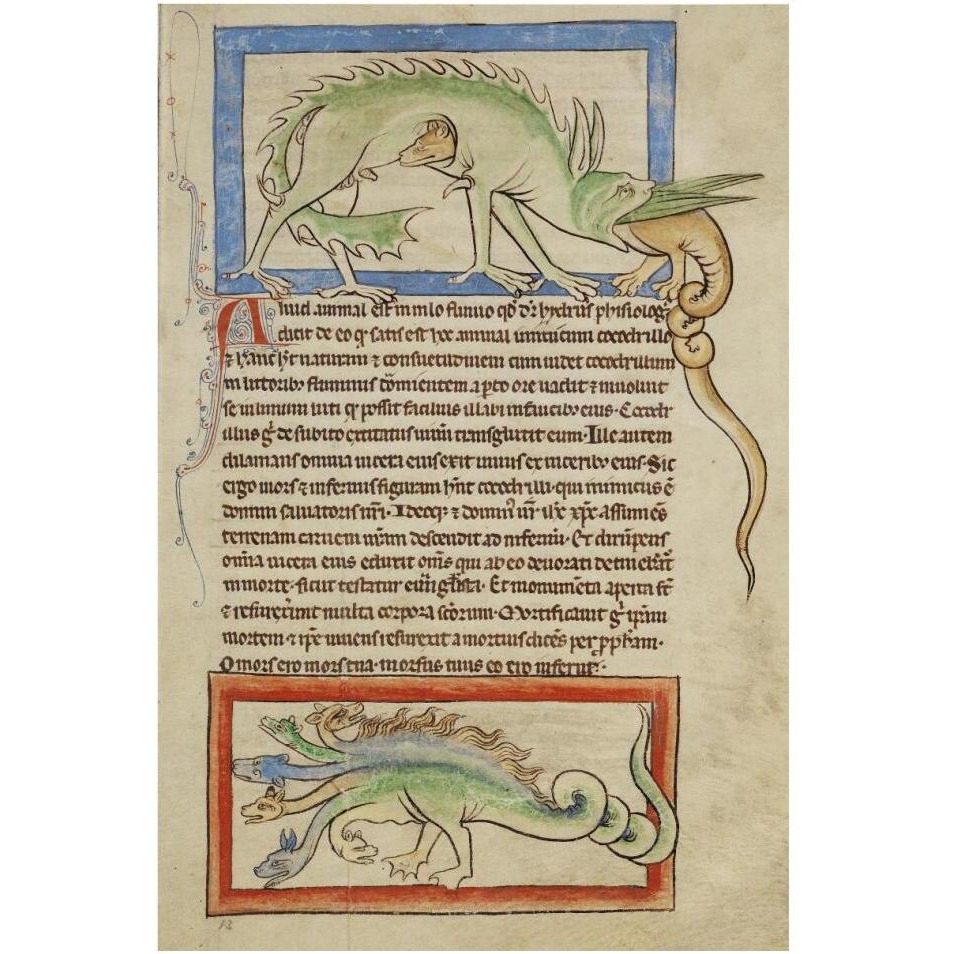 Aliud animal est in nilo fluuio qđ dr̄ hydrus phisiologꝰ
dicit de eo qͥ satis est hoc animal inimicum cocodrillo
⁊ hanc ht̄ naturam ⁊ consuetudinem cum uidet cocodrillum
in littoribꝫ fluminis dōmientem aꝑto ore uadit ⁊ inuoluit
se in limum luti qͦ possit facilius illabi in faucibꝫ eius. Cocodr
illus gͦ de subito excitatus uiuū transglutit eum. Ille autem
dilanians omnia uicera eius exit uiuus ex uiceribꝫ eius. Sic
ergo mors ⁊ infernus figuram hn̄t cocodrilli. qui inimicus ē
domini saluatoris nr̄i. Ideoqꝫ ⁊ dominꝰ nr̄ ih̄c xp̄c assumēs
terrenam carnem nr̄am descendit ad infernū. Et dirūpens
om̄ia uicera eius eduxit om̄s qui ab eo deuorati detinebāt̄
in morte. sicut testatur euu̅glīsta. Et monumēta aperta st̄
⁊ resurexer̄unt multa corpora sc̄orum. Mortificauit gͦ ip̄am
mortem. ⁊ ip̄e uiuens resurexit a mortuis dicēs per ꝓph̄am.
O mors ero mors tua. morsus tuus ero inferne.
13